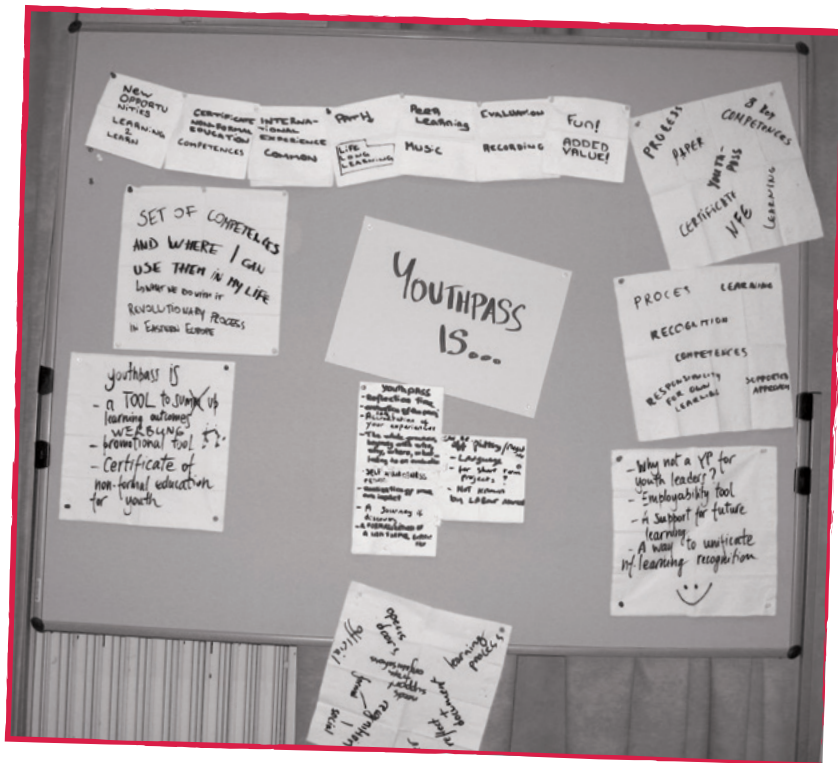 New
OPPORTU
NITIES
LEARNING
2
LEARN
CERTIFICATE
NON FORMAL
EDUCATION
COMPETENCES
INTERNA-
TIONAL
EXPERIENCE
COMMON
PARTY
LIFE
LONG
LEARNING
PEER
LEARNING
MUSIC
EVALUATION
RECORDING
FUN!
ADDED
VALUE!
PROCESS
8 KEY
COMPETENCES
PAPER
YOUTH-
PASS
CERTIFICATE
NFE
LEARNING
SET OF COMPETENCES
AND WHERE I CAN
USE THEM IN MY LIFE
REVOLUTIONARY PROCESS
IN EASTERN EUROPE
YOUTHPASS
IS...
PROCES LEARNING
RECOGNITION
COMPETENCES
RESPONSIBILITY
FOR OWN
LEARNING
SUPPORTED
youthpass is
- a TOOL to sum up
learning outcomes
WERBUNG
- promotional tool
- Certificate of
non-formal education
for youth
YOUTHPASS
- Reflection time
your experiences
- A journey of
discovery
- LANGUAGE
- for short term
projects?
- NOT KNOWN
BY LABOR MARKET
- Why not a YP for
youth leaders?
- Employability tool
- A support for future
learning
- A way to unificate
nf learning recognition
official
opens
doors
learning
process
support
needs
document
reflect
recognition
social